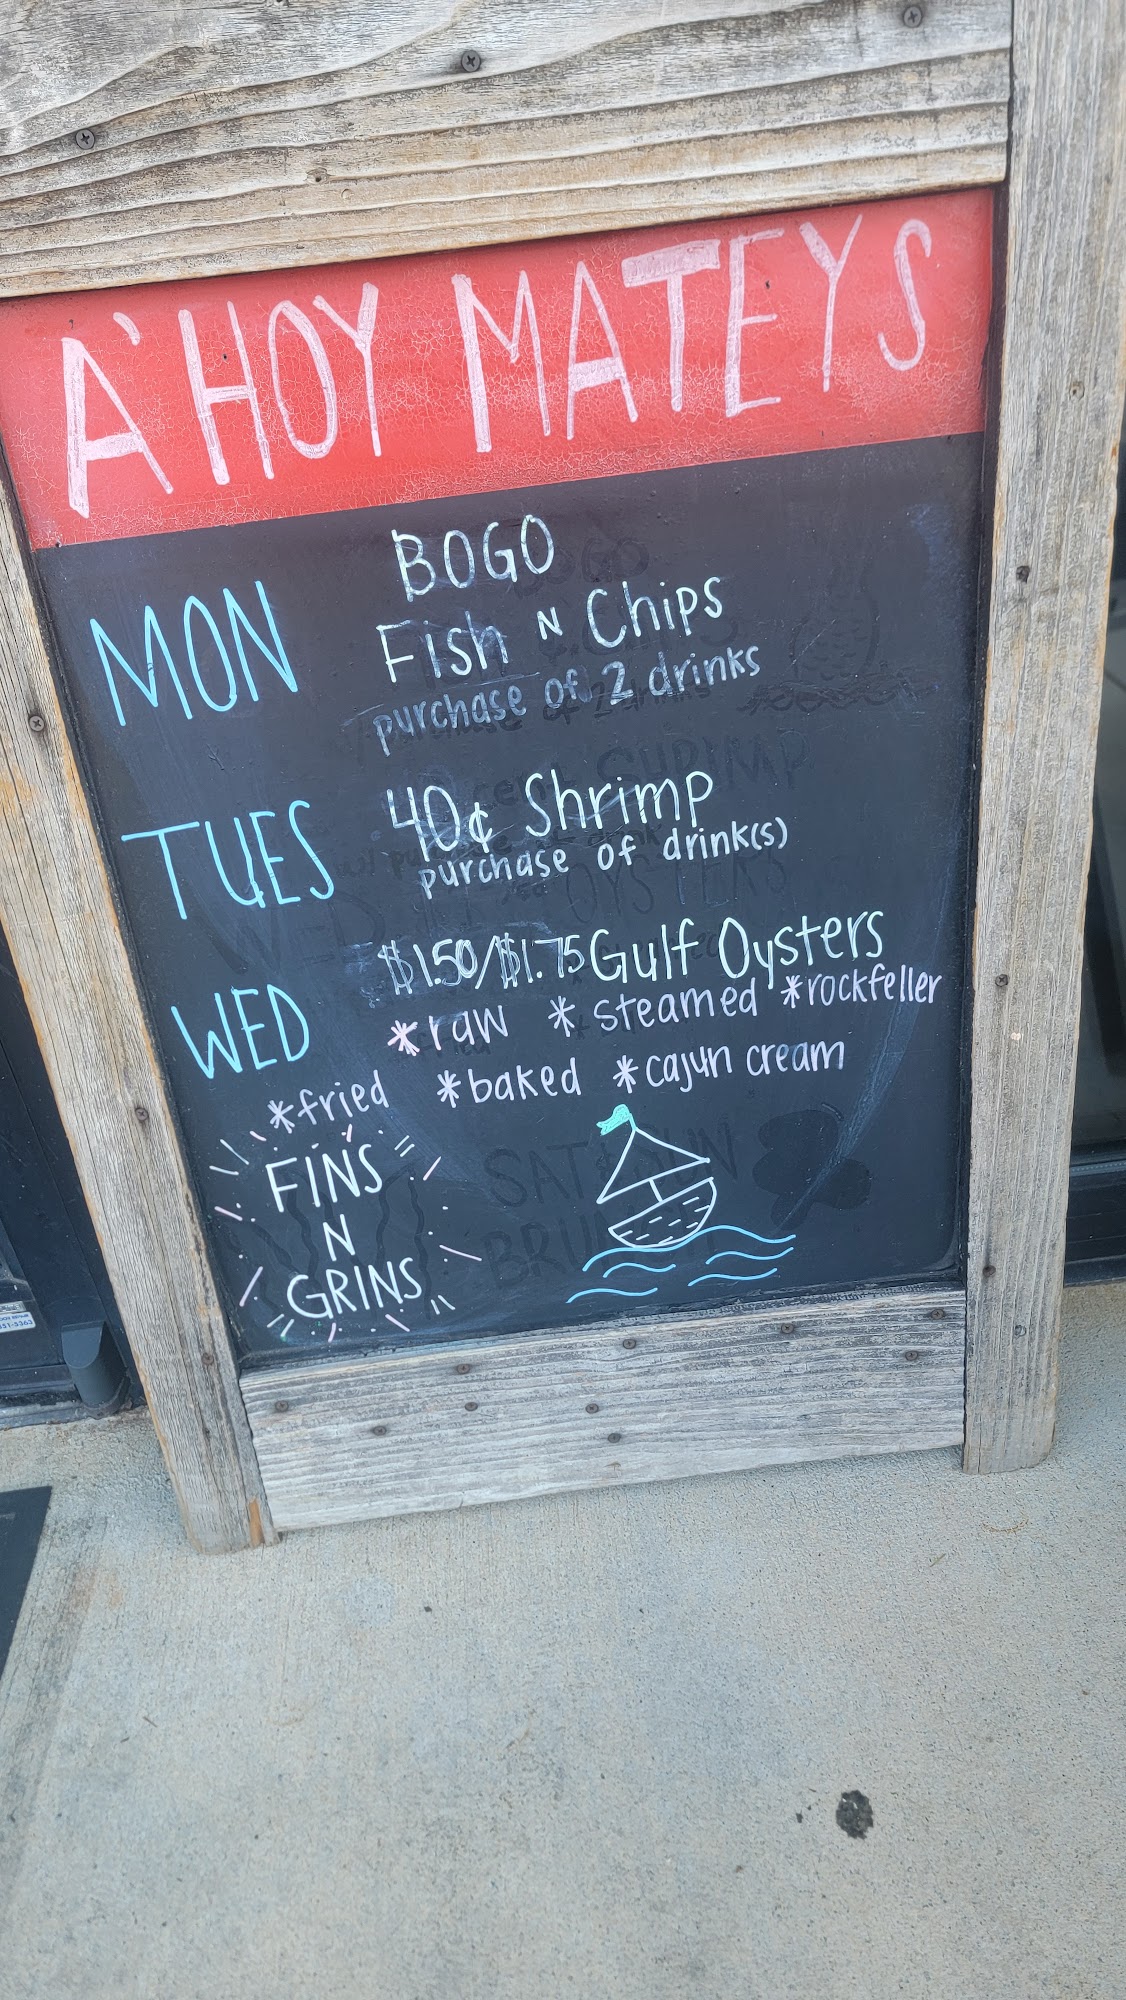 A'HOY MATEYS
MON
BOGO
Fish N Chips
purchase of 2 drinks
TUES
40¢ Shrimp
purchase of drink(s)
WED
$1.50/$1.75 Gulf Oysters
*raw *steamed *rockfeller
*fried *baked *cajun cream
FINS
N
GRINS